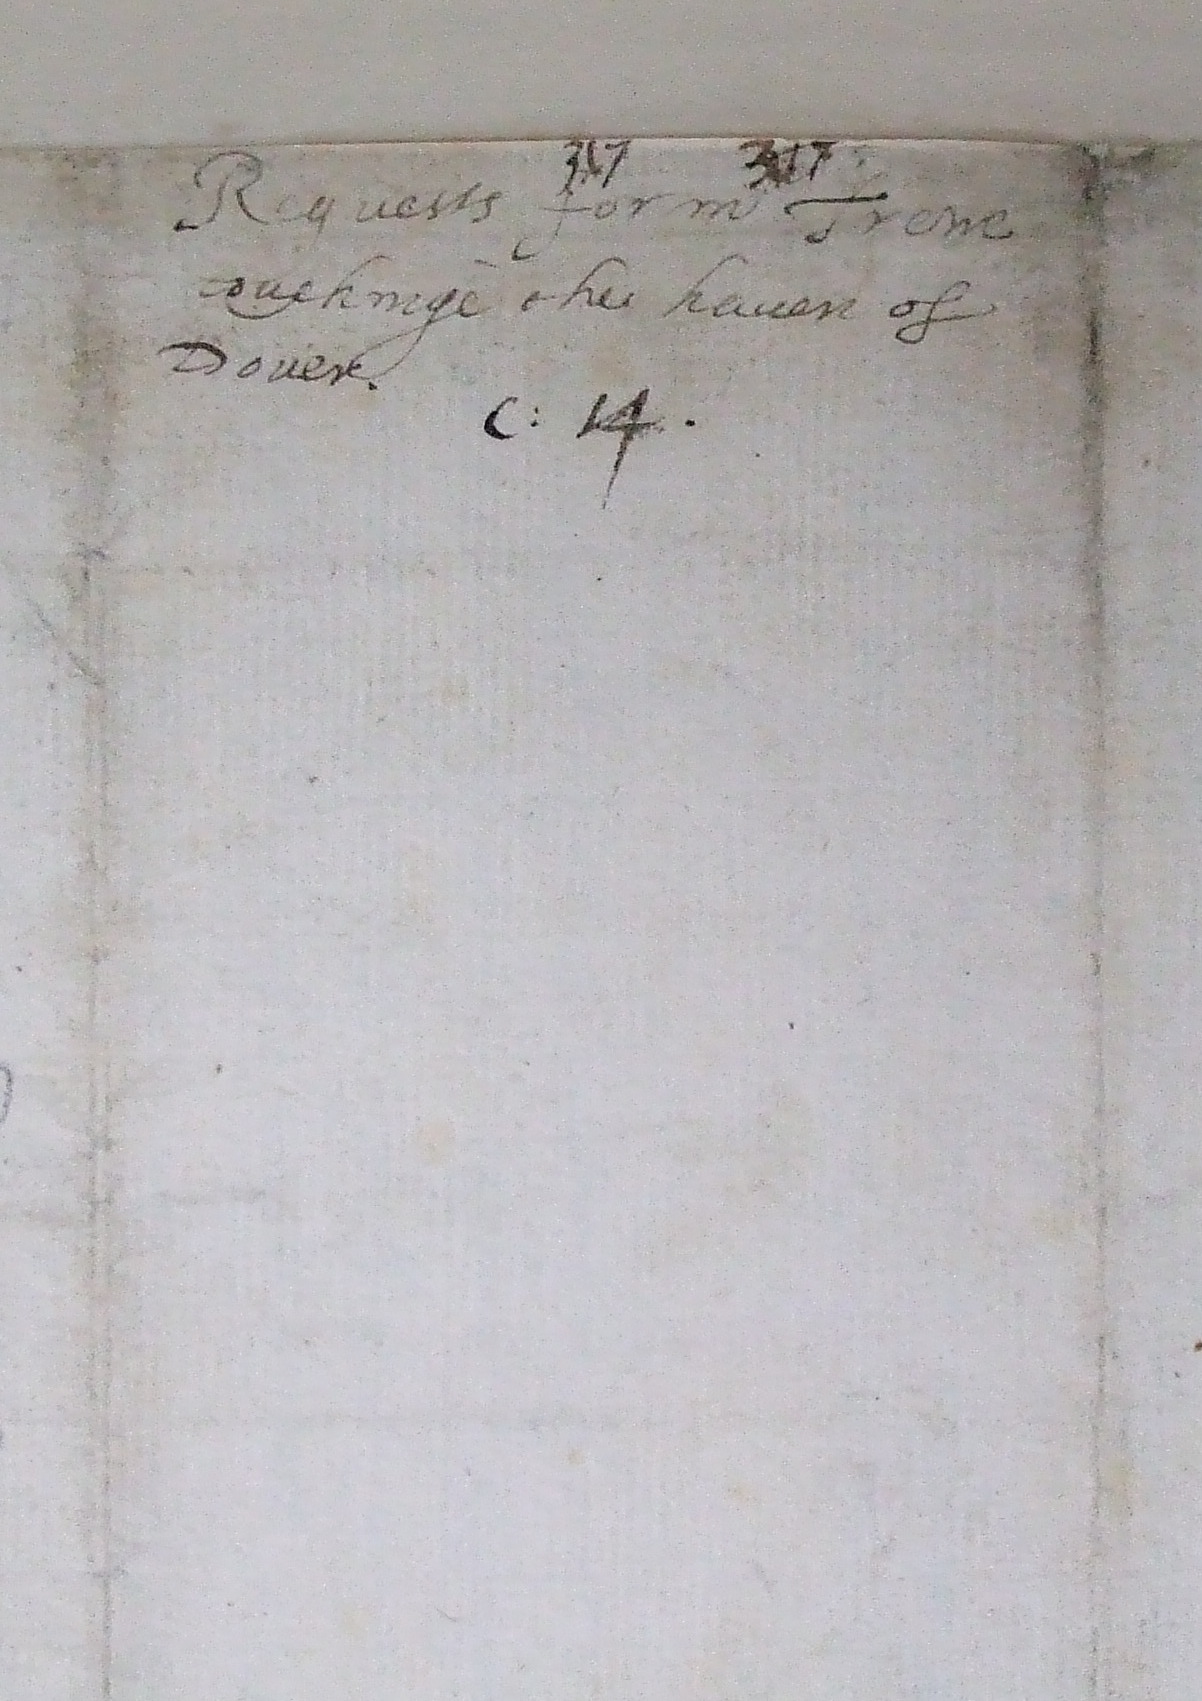 317 317
Requests for mr Trew
touchinge the hauen of
Douer.
C: 14.